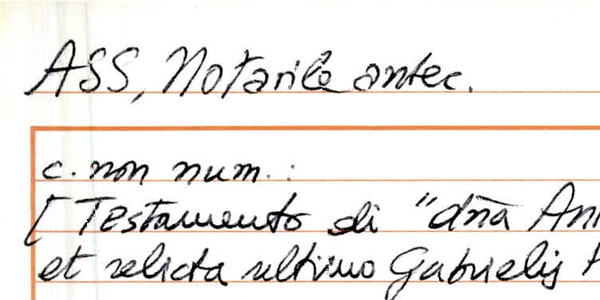 ASS, Notarile antec.
c. non num.:
[Testamento di "dña An
et relicta ultimo Gabrielis